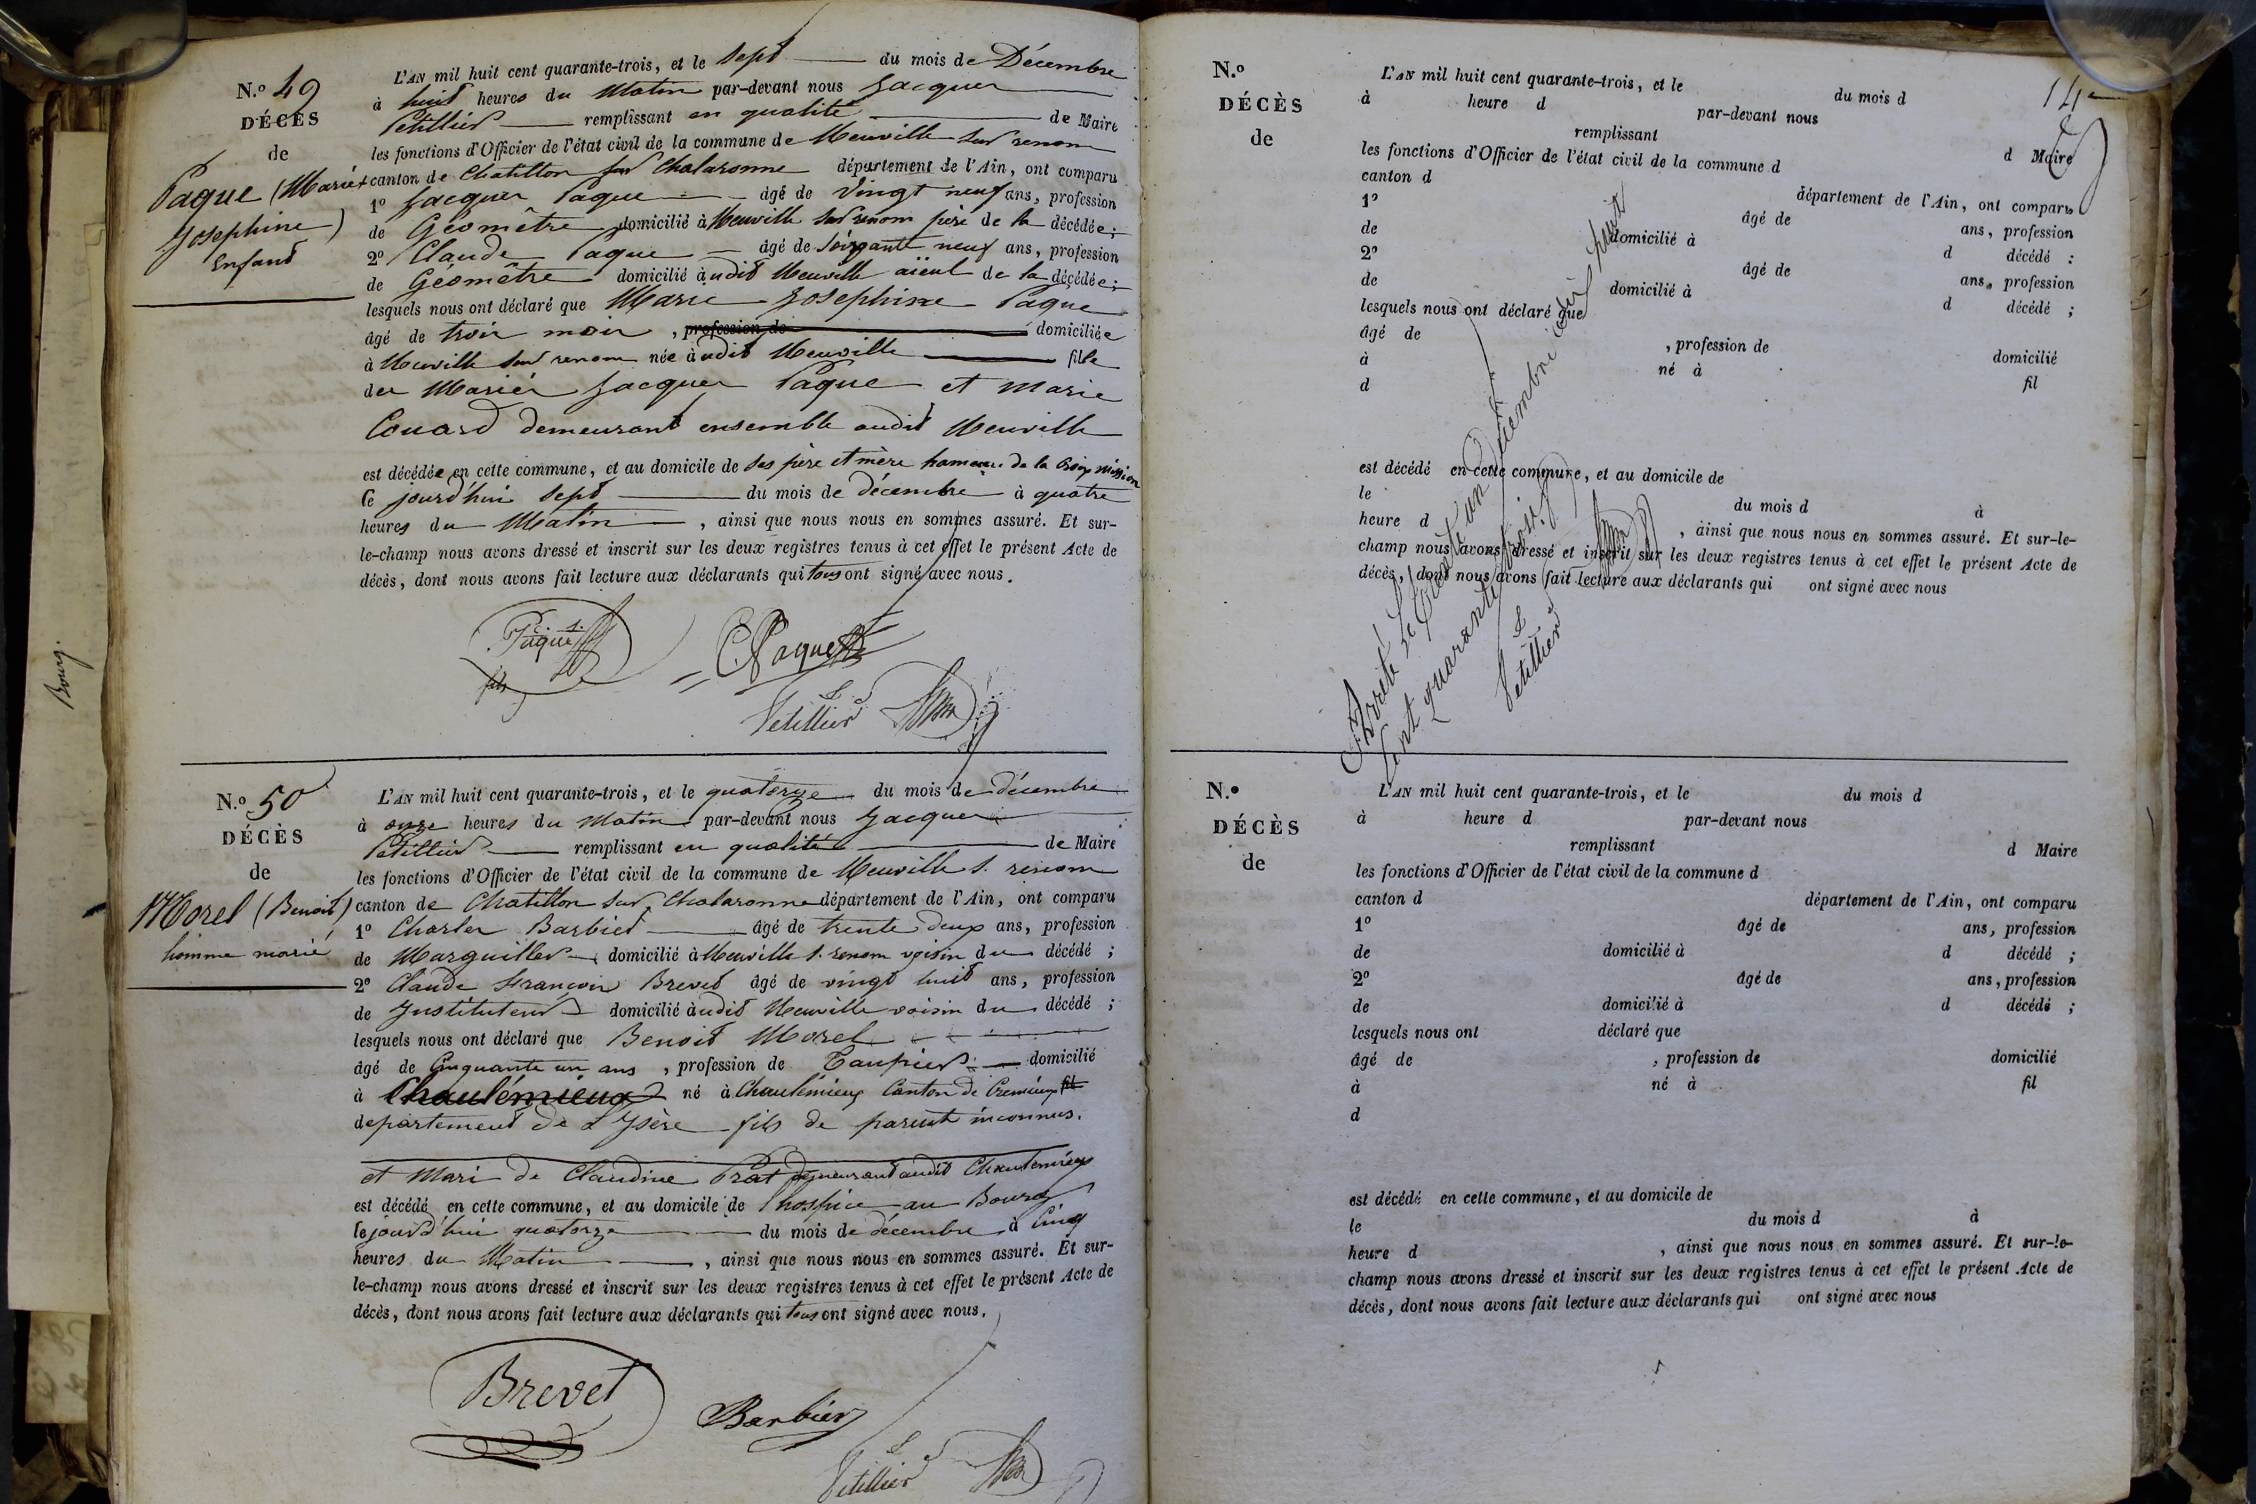 N.º 49
DÉCÈS
de
Paque (Marie
Josephine)
Enfant
L'AN mil huit cent quarante-trois, et le Sept du mois de Décembre
à huit heures du Matin par-devant nous Jacques
Petillier remplissant en qualité de Maire
les fonctions d'Officier de l'état civil de la commune de Neuville sur renom
canton de Chatillon sur Chalaronne département de l'Ain, ont comparu
1º Jacques Paque âgé de Vingt neuf ans, profession
de Géomètre domicilié à Neuville sur renom père de la décédée;
2º Claude Paque âgé de Soixante neuf ans, profession
de Géomètre domicilié audit Neuville aïeul de la décédée;
lesquels nous ont déclaré que Marie Josephine Paque
âgé de trois mois , profession de domiciliée
à Neuville sur renom née audit Neuville fille
des Mariés Jacques Paque et Marie
Couard demeurant ensemble audit Neuville
est décédée en cette commune, et au domicile de ses père et mère hameau de la Croix Mission
le jourd'hui sept du mois de décembre à quatre
heures du Matin , ainsi que nous nous en sommes assuré. Et sur-
le-champ nous avons dressé et inscrit sur les deux registres tenus à cet effet le présent Acte de
décès, dont nous avons fait lecture aux déclarants qui tous ont signé avec nous.
Paque
fils
C. Paque
Petillier
N.º 50
DÉCÈS
de
Morel (Benoit)
homme marié
L'AN mil huit cent quarante-trois, et le quatorze du mois de décembre
à onze heures du Matin par-devant nous Jacques
Petillier remplissant en qualité de Maire
les fonctions d'Officier de l'état civil de la commune de Neuville s. renom
canton de Chatillon sur Chalaronne département de l'Ain, ont comparu
1º Charles Barbier âgé de trente deux ans, profession
de Marguiller domicilié à Neuville s. renom voisin du décédé ;
2º Claude François Brevet âgé de vingt huit ans, profession
de Instituteur domicilié audit Neuville voisin du décédé ;
lesquels nous ont déclaré que Benoit Morel
âgé de Cinquante un ans , profession de Taupier domicilié
à Chaulémieux né à Chaulémieux Canton de Cremieux fil
departement de L'Isère fils de parents inconnus.
et Mari de Claudine Prat demeurant audit Chaulemieux
est décédé en cette commune, et au domicile de l'hospice au Bourg
le jourd'hui quatorze du mois de décembre à Cinq
heures du Matin , ainsi que nous nous en sommes assuré. Et sur-
le-champ nous avons dressé et inscrit sur les deux registres tenus à cet effet le présent Acte de
décès, dont nous avons fait lecture aux déclarants qui tous ont signé avec nous.
Brevet
Barbier
Petillier
Bourg.
14
N.º
DÉCÈS
de
L'AN mil huit cent quarante-trois, et le du mois d
à heure d par-devant nous
remplissant d Maire
les fonctions d'Officier de l'état civil de la commune d
canton d département de l'Ain, ont comparu
1º âgé de ans, profession
de domicilié à d décédé :
2º âgé de ans, profession
de domicilié à d décédé ;
lesquels nous ont déclaré que
âgé de , profession de domicilié
à né à fil
d
est décédé en cette commune, et au domicile de
le du mois d à
heure d , ainsi que nous nous en sommes assuré. Et sur-le-
champ nous avons dressé et inscrit sur les deux registres tenus à cet effet le présent Acte de
décès, dont nous avons fait lecture aux déclarants qui ont signé avec nous
Arrêté le trente un décembre dix huit
Cent quarante trois.
Petillier
N.º
DÉCÈS
de
L'AN mil huit cent quarante-trois, et le du mois d
à heure d par-devant nous
remplissant d Maire
les fonctions d'Officier de l'état civil de la commune d
canton d département de l'Ain, ont comparu
1º âgé de ans, profession
de domicilié à d décédé ;
2º âgé de ans, profession
de domicilié à d décédé ;
lesquels nous ont déclaré que
âgé de , profession de domicilié
à né à fil
d
est décédé en cette commune, et au domicile de
le du mois d à
heure d , ainsi que nous nous en sommes assuré. Et sur-le-
champ nous avons dressé et inscrit sur les deux registres tenus à cet effet le présent Acte de
décès, dont nous avons fait lecture aux déclarants qui ont signé avec nous